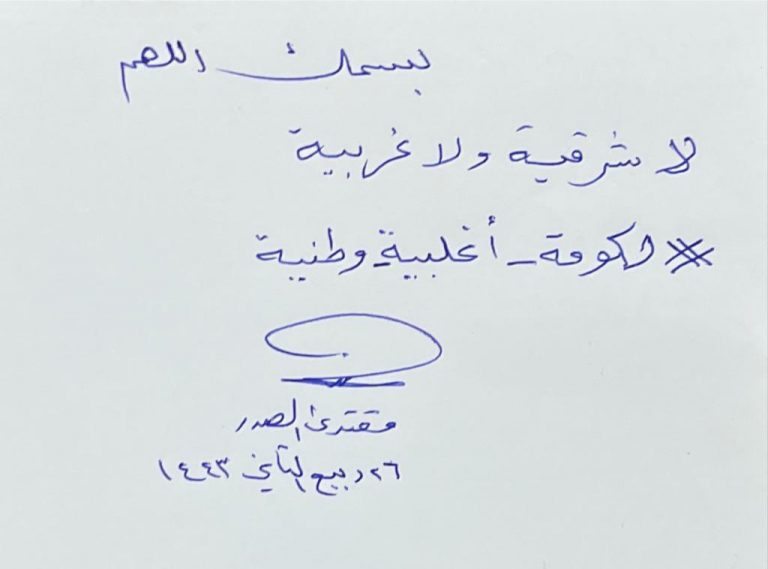 بسمك اللهم
لا شرقية ولا غربية
#حكومة_أغلبية_وطنية
مقتدى الصدر
٢٦ ربيع الثاني ١٤٤٣